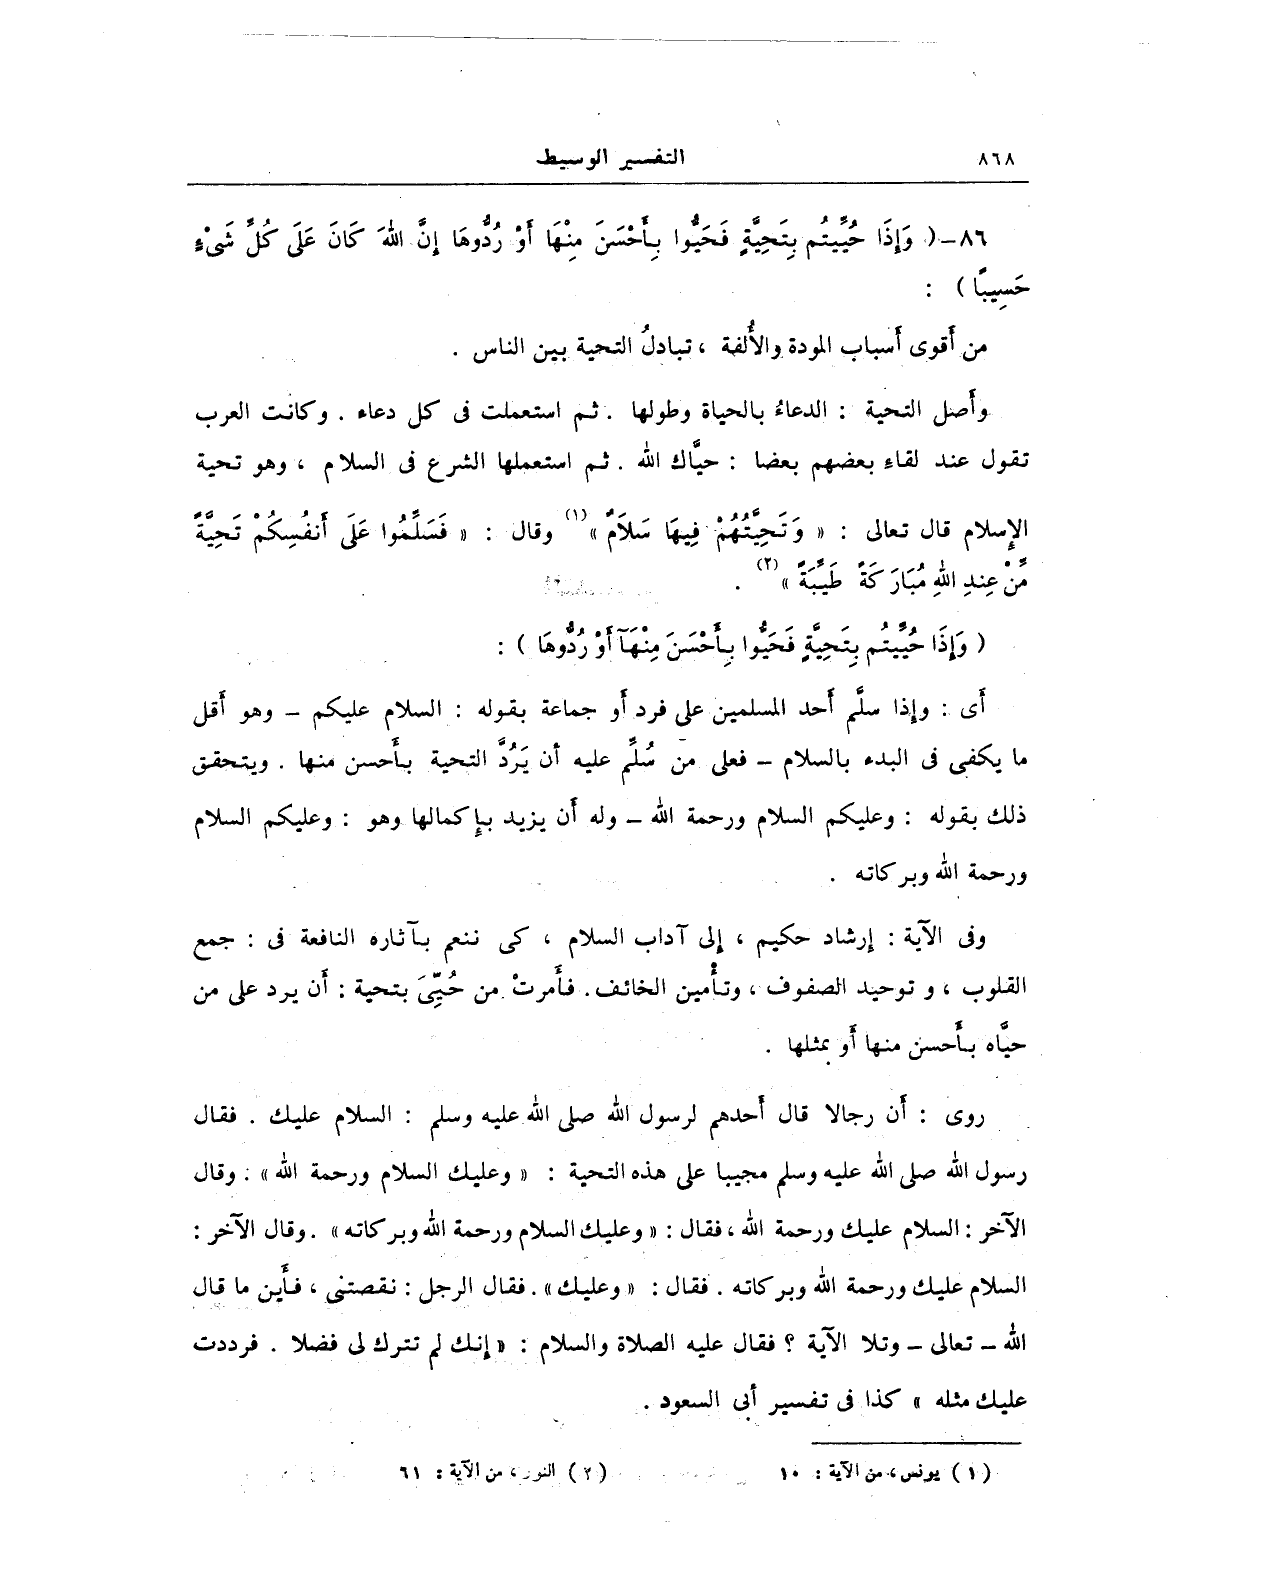 ٨٦٨ التفسير الوسيط
٨٦-( وَإِذَا حُيِّيتُم بِتَحِيَّةٍ فَحَيُّوا بِأَحْسَنَ مِنْهَا أَوْ رُدُّوهَا إِنَّ اللهَ كَانَ عَلَى كُلِّ شَىْءٍ
حَسِيبًا ) :
من أَقوى أَسباب المودة والأُلفة ، تبادلُ التحية بين الناس .
وأَصل التحية : الدعاءُ بالحياة وطولها . ثم استعملت فى كل دعاء . وكانت العرب
تقول عند لقاءِ بعضهم بعضا : حيَّاك الله . ثم استعملها الشرع فى السلام ، وهو تحية
الإِسلام قال تعالى : « وَتَحِيَّتُهُمْ فِيهَا سَلَامٌ »(١) وقال : « فَسَلِّمُوا عَلَى أَنفُسِكُمْ تَحِيَّةً
مِّنْ عِندِ اللهِ مُبَارَكَةً طَيِّبَةً »(٢) .
( وَإِذَا حُيِّيتُم بِتَحِيَّةٍ فَحَيُّوا بِأَحْسَنَ مِنْهَآ أَوْ رُدُّوهَا ) :
أَى : وإذا سلَّم أَحد المسلمين على فرد أَو جماعة بقوله : السلام عليكم – وهو أَقل
ما يكفى فى البدء بالسلام – فعلى من سُلِّم عليه أن يَرُدَّ التحية بأَحسن منها . ويتحقق
ذلك بقوله : وعليكم السلام ورحمة الله – وله أَن يزيد بإِكمالها وهو : وعليكم السلام
ورحمة الله وبركاته .
وفى الآية : إرشاد حكيم ، إلى آداب السلام ، كى ننعم بآثاره النافعة فى : جمع
القلوب ، و توحيد الصفوف ، وتأْمين الخائف. فأَمرتْ من حُيِّىَ بتحية : أَن يرد على من
حيَّاه بأَحسن منها أَو بمثلها .
روى : أَن رجالا قال أَحدهم لرسول الله صلى الله عليه وسلم : السلام عليك . فقال
رسول الله صلى الله عليه وسلم مجيبا على هذه التحية : « وعليك السلام ورحمة الله » . وقال
الآخر : السلام عليك ورحمة الله ، فقال : « وعليك السلام ورحمة الله وبركاته » . وقال الآخر :
السلام عليك ورحمة الله وبركاته . فقال : « وعليك » . فقال الرجل : نقصتنى ، فأَين ما قال
الله – تعالى – وتلا الآية ؟ فقال عليه الصلاة والسلام : « إنك لم تترك لى فضلا . فرددت
عليك مثله » كذا فى تفسير أَبى السعود .
(١) يونس، من الآية : ١٠ (٢) النور، من الآية : ٦١